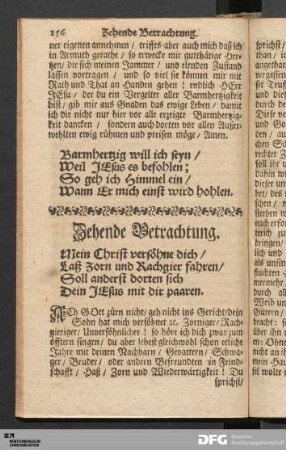 256 Zehende Betrachtung.
ner eigenen annehmen / triffts aber auch mich daß ich
in Armuth gerathe / so erwecke mir gutthätige Her-
tzen / die sich meinen Jammer / und elenden Zustand
lassen vortragen / und so viel sie können mir mit
Rath und That an Handen gehen! endlich HErr
JEsu / der du ein Vergelter aller Barmhertzigkeit
bist / gib mir aus Gnaden das ewige Leben / damit
ich dir nicht nur hier vor alle erzeigte Barmhertzig-
keit dancken / sondern auch dorten vor allen Außer-
wehlten ewig rühmen und preisen möge / Amen.
Barmhertzig will ich seyn /
Weil JEsus es befohlen;
So geh ich Himmel ein /
Wann Er mich einst wird hohlen.
Zehende Betrachtung.
Mein Christ versöhne dich /
Laß Zorn und Rachgier fahren /
Soll anderst dorten sich
Dein JEsus mit dir paaren.
ACh GOtt zürn nicht / geh nicht ins Gericht / dein
Sohn hat mich versöhnet ꝛc. Zorniger / Rach-
gieriger / Unversöhnlicher! so höre ich dich zwar zum
öfftern singen / du aber lebest gleichwohl schon etliche
Jahre mit deinen Nachbarn / Gevattern / Schwa-
ger / Bruder / oder andern Befreundten in Feind-
schafft / Haß / Zorn und Wiederwärtigkeit! Du
sprichst /
DFG Deutsche
Forschungsgemeinschaft